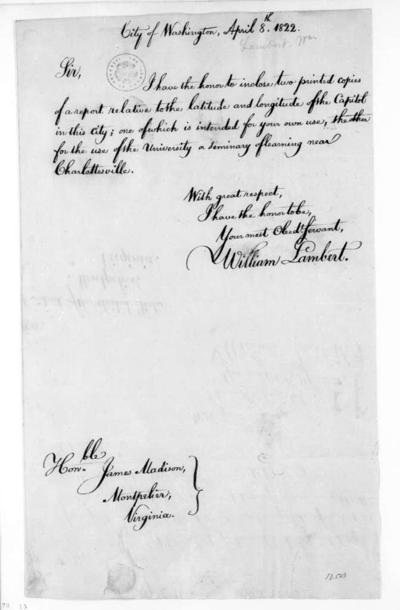 City of Washington, April 8.th 1822.
Lambert, Wm
Sir,
I have the honor to inclose two printed copies
of a report relative to the latitude and longitude of the Capitol
in this city; one of which is intended for your own use, the other
for the use of the University a seminary of learning near
Charlottesville.
With great respect,
I have the honor to be,
Your most Obedt servant,
William Lambert.
Hon.ble
James Madison,
Montpelier,
Virginia.